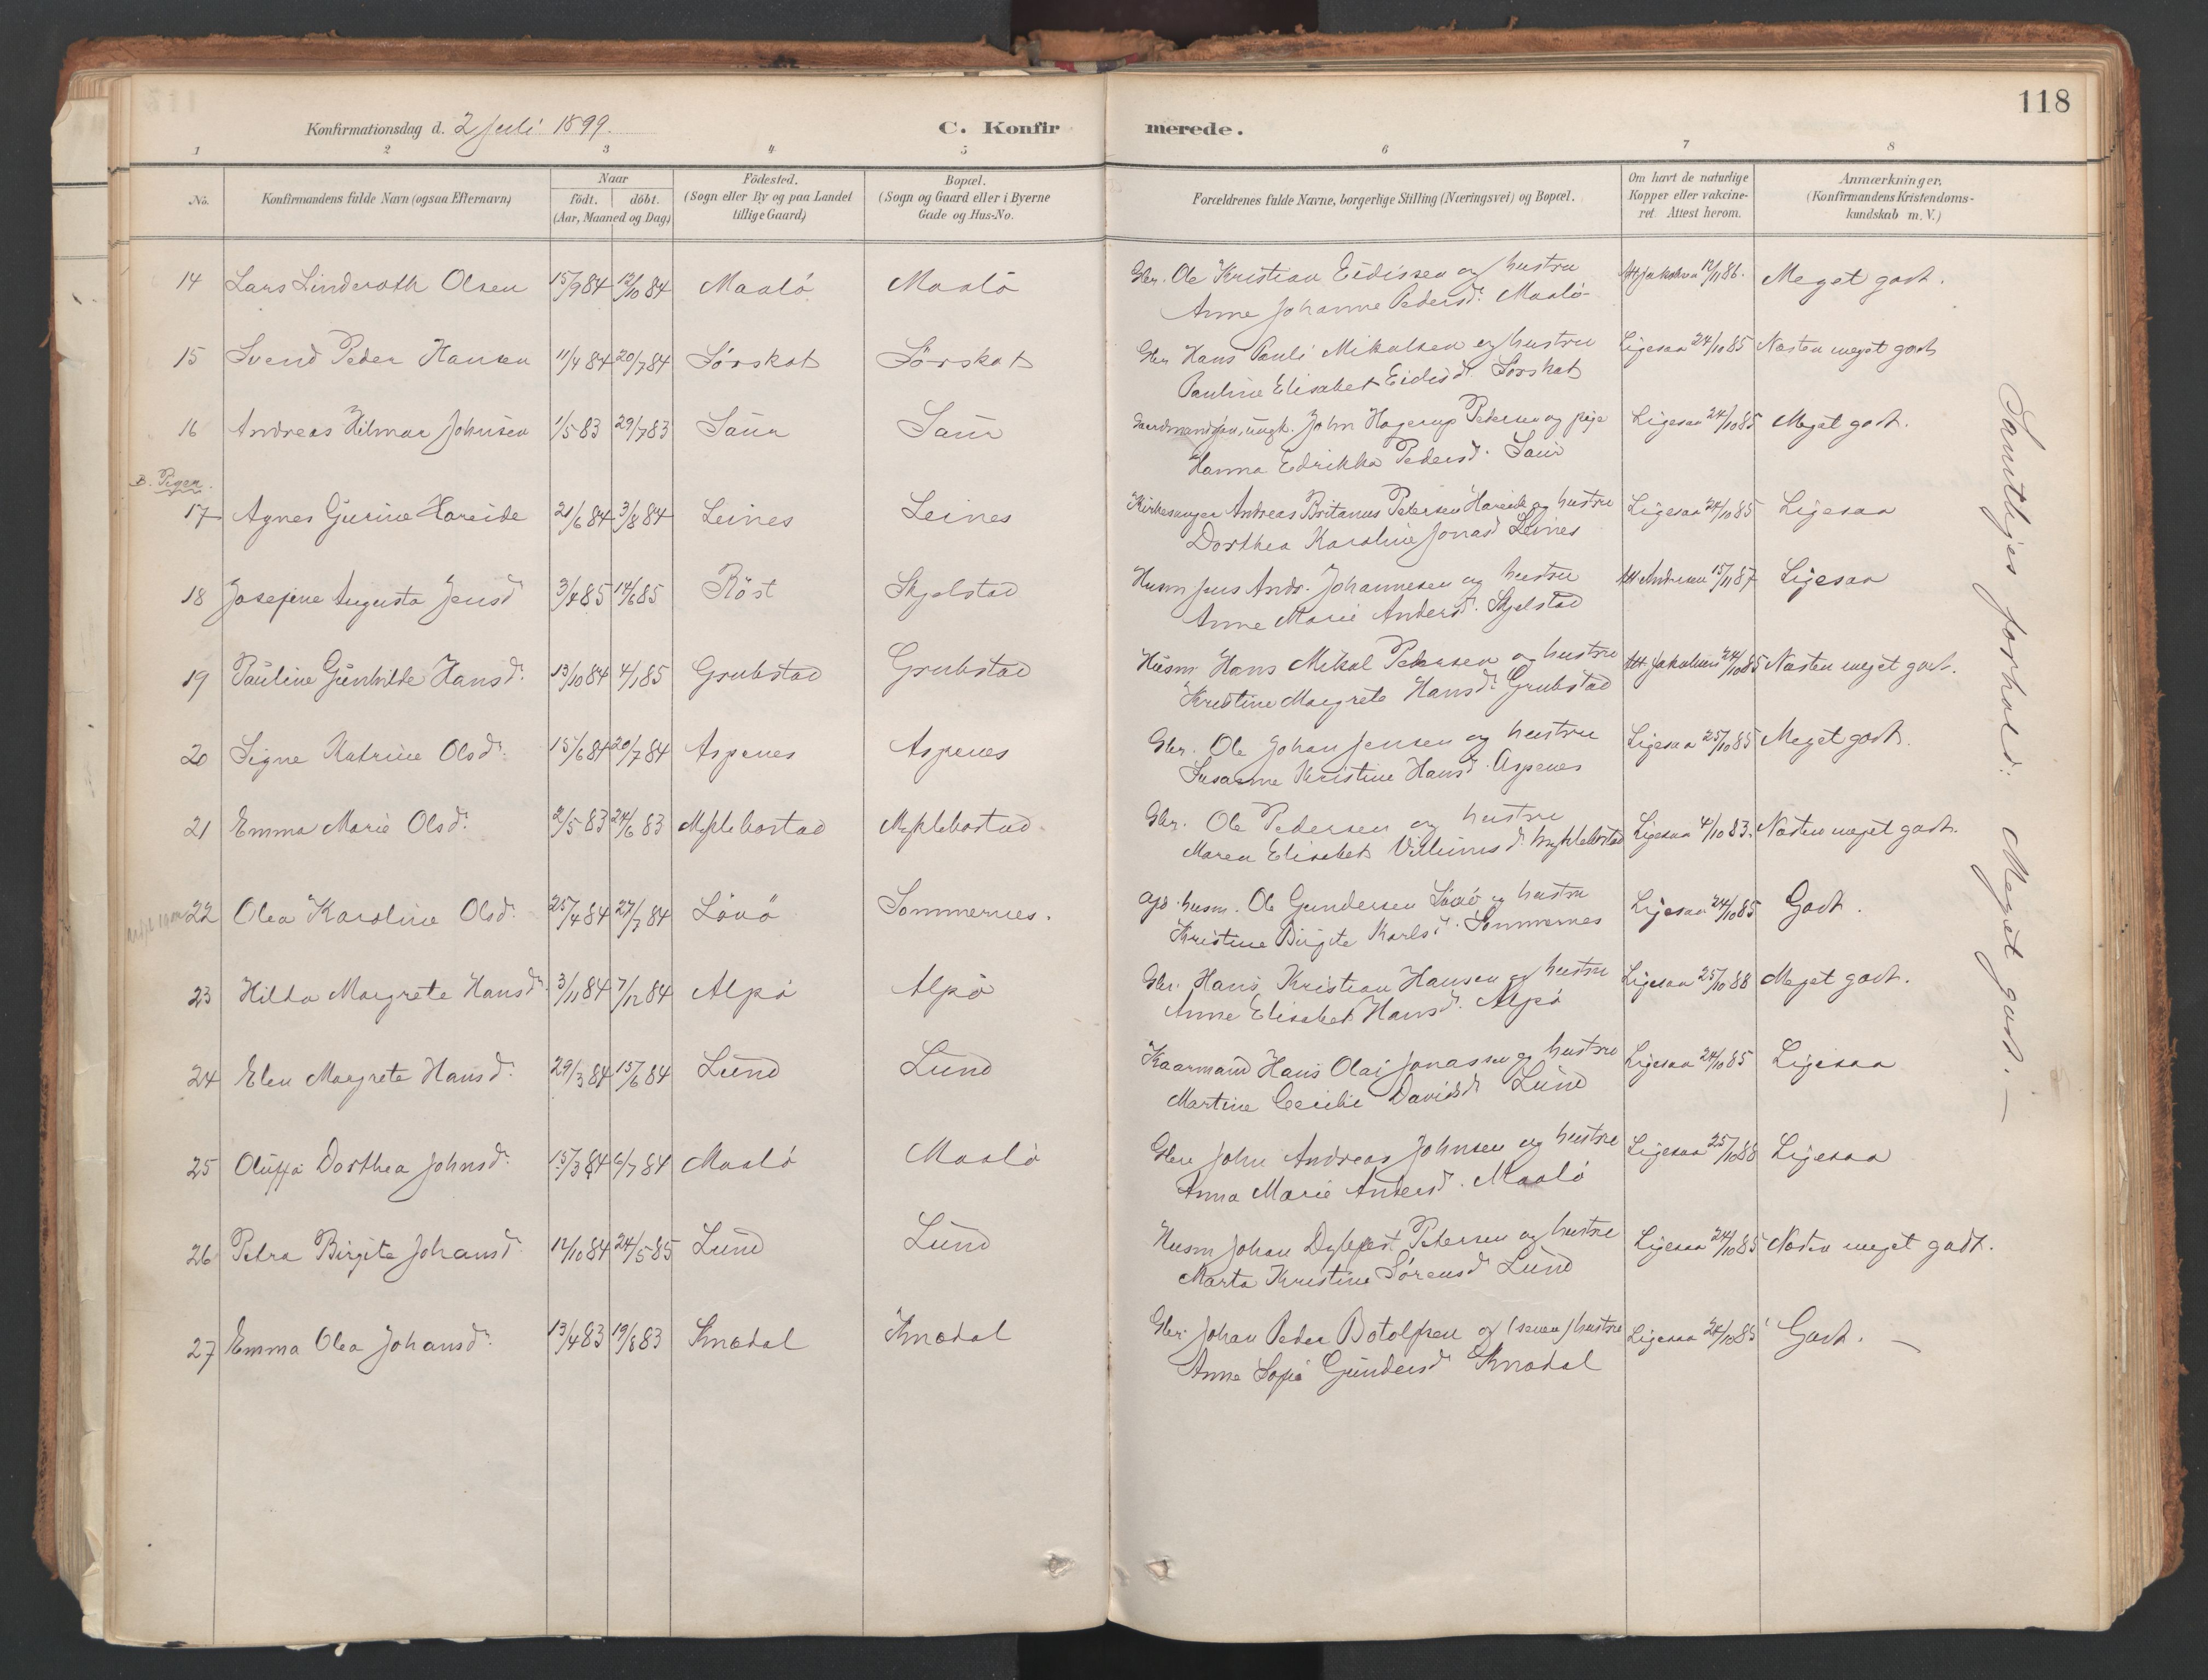 118
Konfirmationsdag d. 2 Juli 1899.
C. Konfirmerede.
1 2 3 4 5 6 7 8
No.
Konfirmandens fulde Navn (ogsaa Efternavn)
Naar
födt. döbt.
(Aar, Maaned og Dag)
Födested.
(Sogn eller By og paa Landet
tillige Gaard)
Bopæl.
(Sogn og Gaard eller i Byerne
Gade og Hus-No.
Forældrenes fulde Navne, borgerlige Stilling (Næringsvei) og Bopæl.
Om havt de naturlige
Kopper eller vakcine-
ret. Attest herom.
Anmærkninger,
(Konfirmandens Kristendoms-
kundskab m. V.)
14 Lars Linderoth Olsen 15/9 84 12/10 84 Maalö Maalö Gbr. Ole Kristian Eidissen og hustru Att Jakobsen 12/11 86. Meget godt.
Anne Johanne Pedersd. Maalö
15 Svend Peder Hansen 11/4 84 20/7 84 Sörskot Sörskot Gbr Hans Pauli Mikalsen og hustru Ligesaa 24/10 85 Næsten meget godt
Pauline Elisabet Eidisd. Sörskot
16 Andreas Hilmar Johnsen 1/5 83 29/7 83 Saur Saur ungk. John Hagerup Pedersen og pige Ligesaa 24/10 85 Meget godt.
Hanna Edrikka Pedersd. Saur
B. Piger.
17 Agnes Gurine Hareide 21/6 84 3/8 84 Leines Leines Kirkesanger Andreas Britanus Petersen Hareide og hustru Ligesaa 24/10 85 Ligesaa
Dorthea Karoline Jonasd Leines
18 Josefine Augusta Jensd 3/4 85 14/6 85 Röst Skjelstad Husm Jens Andr. Johannesen og hustru Att Andresen 15/11 87 Ligesaa
Anne Marie Andersd. Skjelstad
19 Pauline Gunhilde Hansd. 13/10 84 4/1 85 Grubstad Grubstad Husm Hans Mikal Pedersen og hustru Att Jakobsen 24/10 85 Næsten meget godt.
Kristine Margrete Hansd. Grubstad
20 Signe Katrine Olsd. 15/6 84 20/7 84 Aspenes Aspenes Gbr. Ole Johan Jensen og hustru Ligesaa 25/10 85 Meget godt.
Susanne Kristine Hansd. Aspenes
21 Emma Marie Olsd. 2/5 83 24/6 83 Myklebostad Myklebostad. Gbr. Ole Pedersen og hustru Ligesaa 4/10 83. Næsten meget godt.
Maren Elisabet Villumsd. Myklebostad
22 Olea Karoline Olsd. 25/4 84 27/7 84 Lövö Sommernes. husm. Ole Gundersen Lövö og hustru Ligesaa 24/10 85 Godt.
Kristine Birgite Karlsd. Sommernes
23 Hilda Margrete Hansd 3/11 84 7/12 84 Alpö Alpö Gbr. Hans Kristian Hansen og hustru Ligesaa 25/10 88 Meget godt.
Anne Elisabet Hansd. Alpö
24 Elen Margrete Hansd. 29/3 84 15/6 84 Lund Lund Kaarmand Hans Olai Jonassen og hustru Ligesaa 24/10 85 Ligesaa
Martine Cecilie Davidsd Lund
25 Oluffa Dorthea Johnsd. 15/3 84 6/7 84 Maalö Maalö Gbr John Andreas Johnsen og hustru Ligesaa 25/10 88 Ligesaa
Anna Marie Andersd. Maalö
26 Petra Birgite Johansd. 12/10 84 24/5 85 Lund Lund Husm Johan Dybfest Petersen og hustru Ligesaa 24/10 85 Næsten meget godt.
Marta Kristine Sörensd Lund
27 Emma Olea Johansd. 13/4 83 19/8 83 Knædal Knædal Gbr. Johan Peder Botolfsen og (senere) hustru Ligesaa 24/10 85 Godt. —
Anne Sofie Gundersd Knædal
Samtliges forhold: Meget godt. —